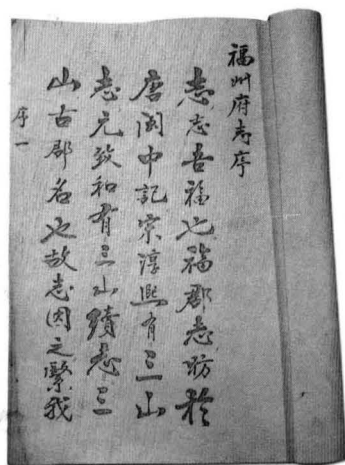 福州府志序
志志吾福也福郡志昉於
唐閩中記宋淳熙有三山
志元致和有三山續志三
山古郡名也故志因之繫我
序一